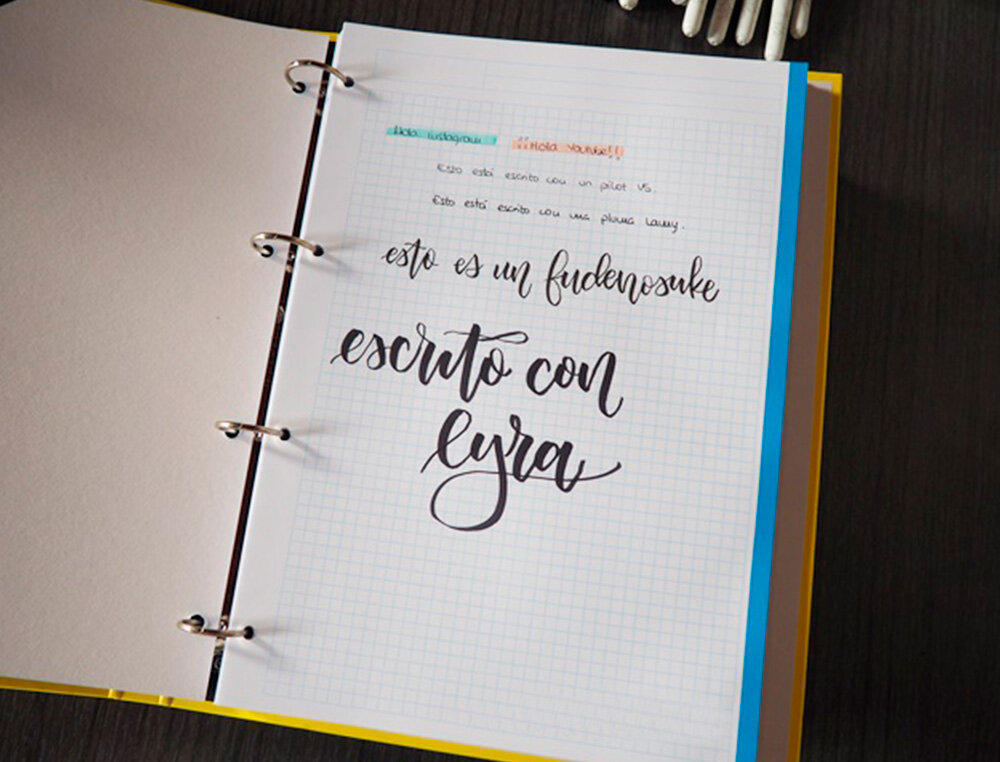 Hola instagram! ¡¡Hola Youtube!!
Esto está escrito con un pilot V5.
Esto está escrito con una pluma Lamy.
esto es un fudenosuke
escrito con
lyra